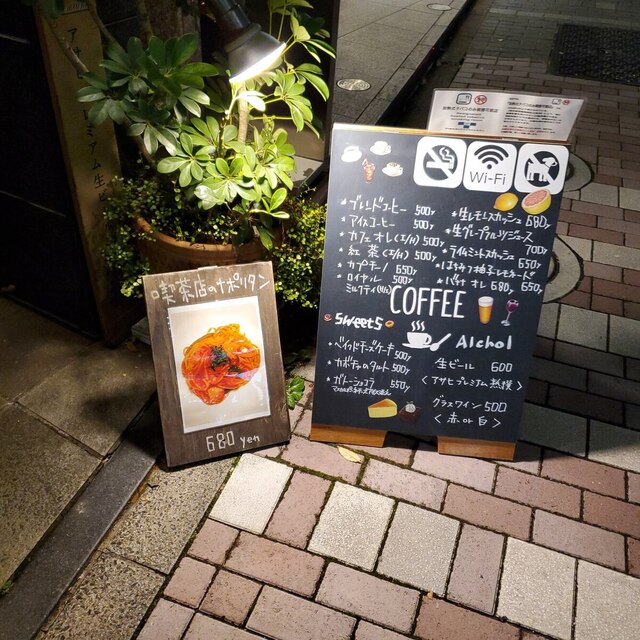 喫茶店のナポリタン
680 yen
Wi-Fi
*ブレンドコーヒー 500y
*アイスコーヒー 500y
*カフェオレ(I/H) 500y
*紅茶(I/H) 500y
*カプチーノ 650y
*ロイヤル 500y
ミルクティ
*生レモンスカッシュ 680y
*生グレープフルーツジュース 700y
*ライムミントスカッシュ 650y
*はちみつ柚子レモネード 650y
*バナナオレ 680y
COFFEE
Sweets
*ベイクドチーズケーキ 500y
*カボチャのタルト 500y
*ガトーショコラ 550y
Alchol
生ビール 600
<アサヒプレミアム熟撰>
グラスワイン 500
<赤or白>